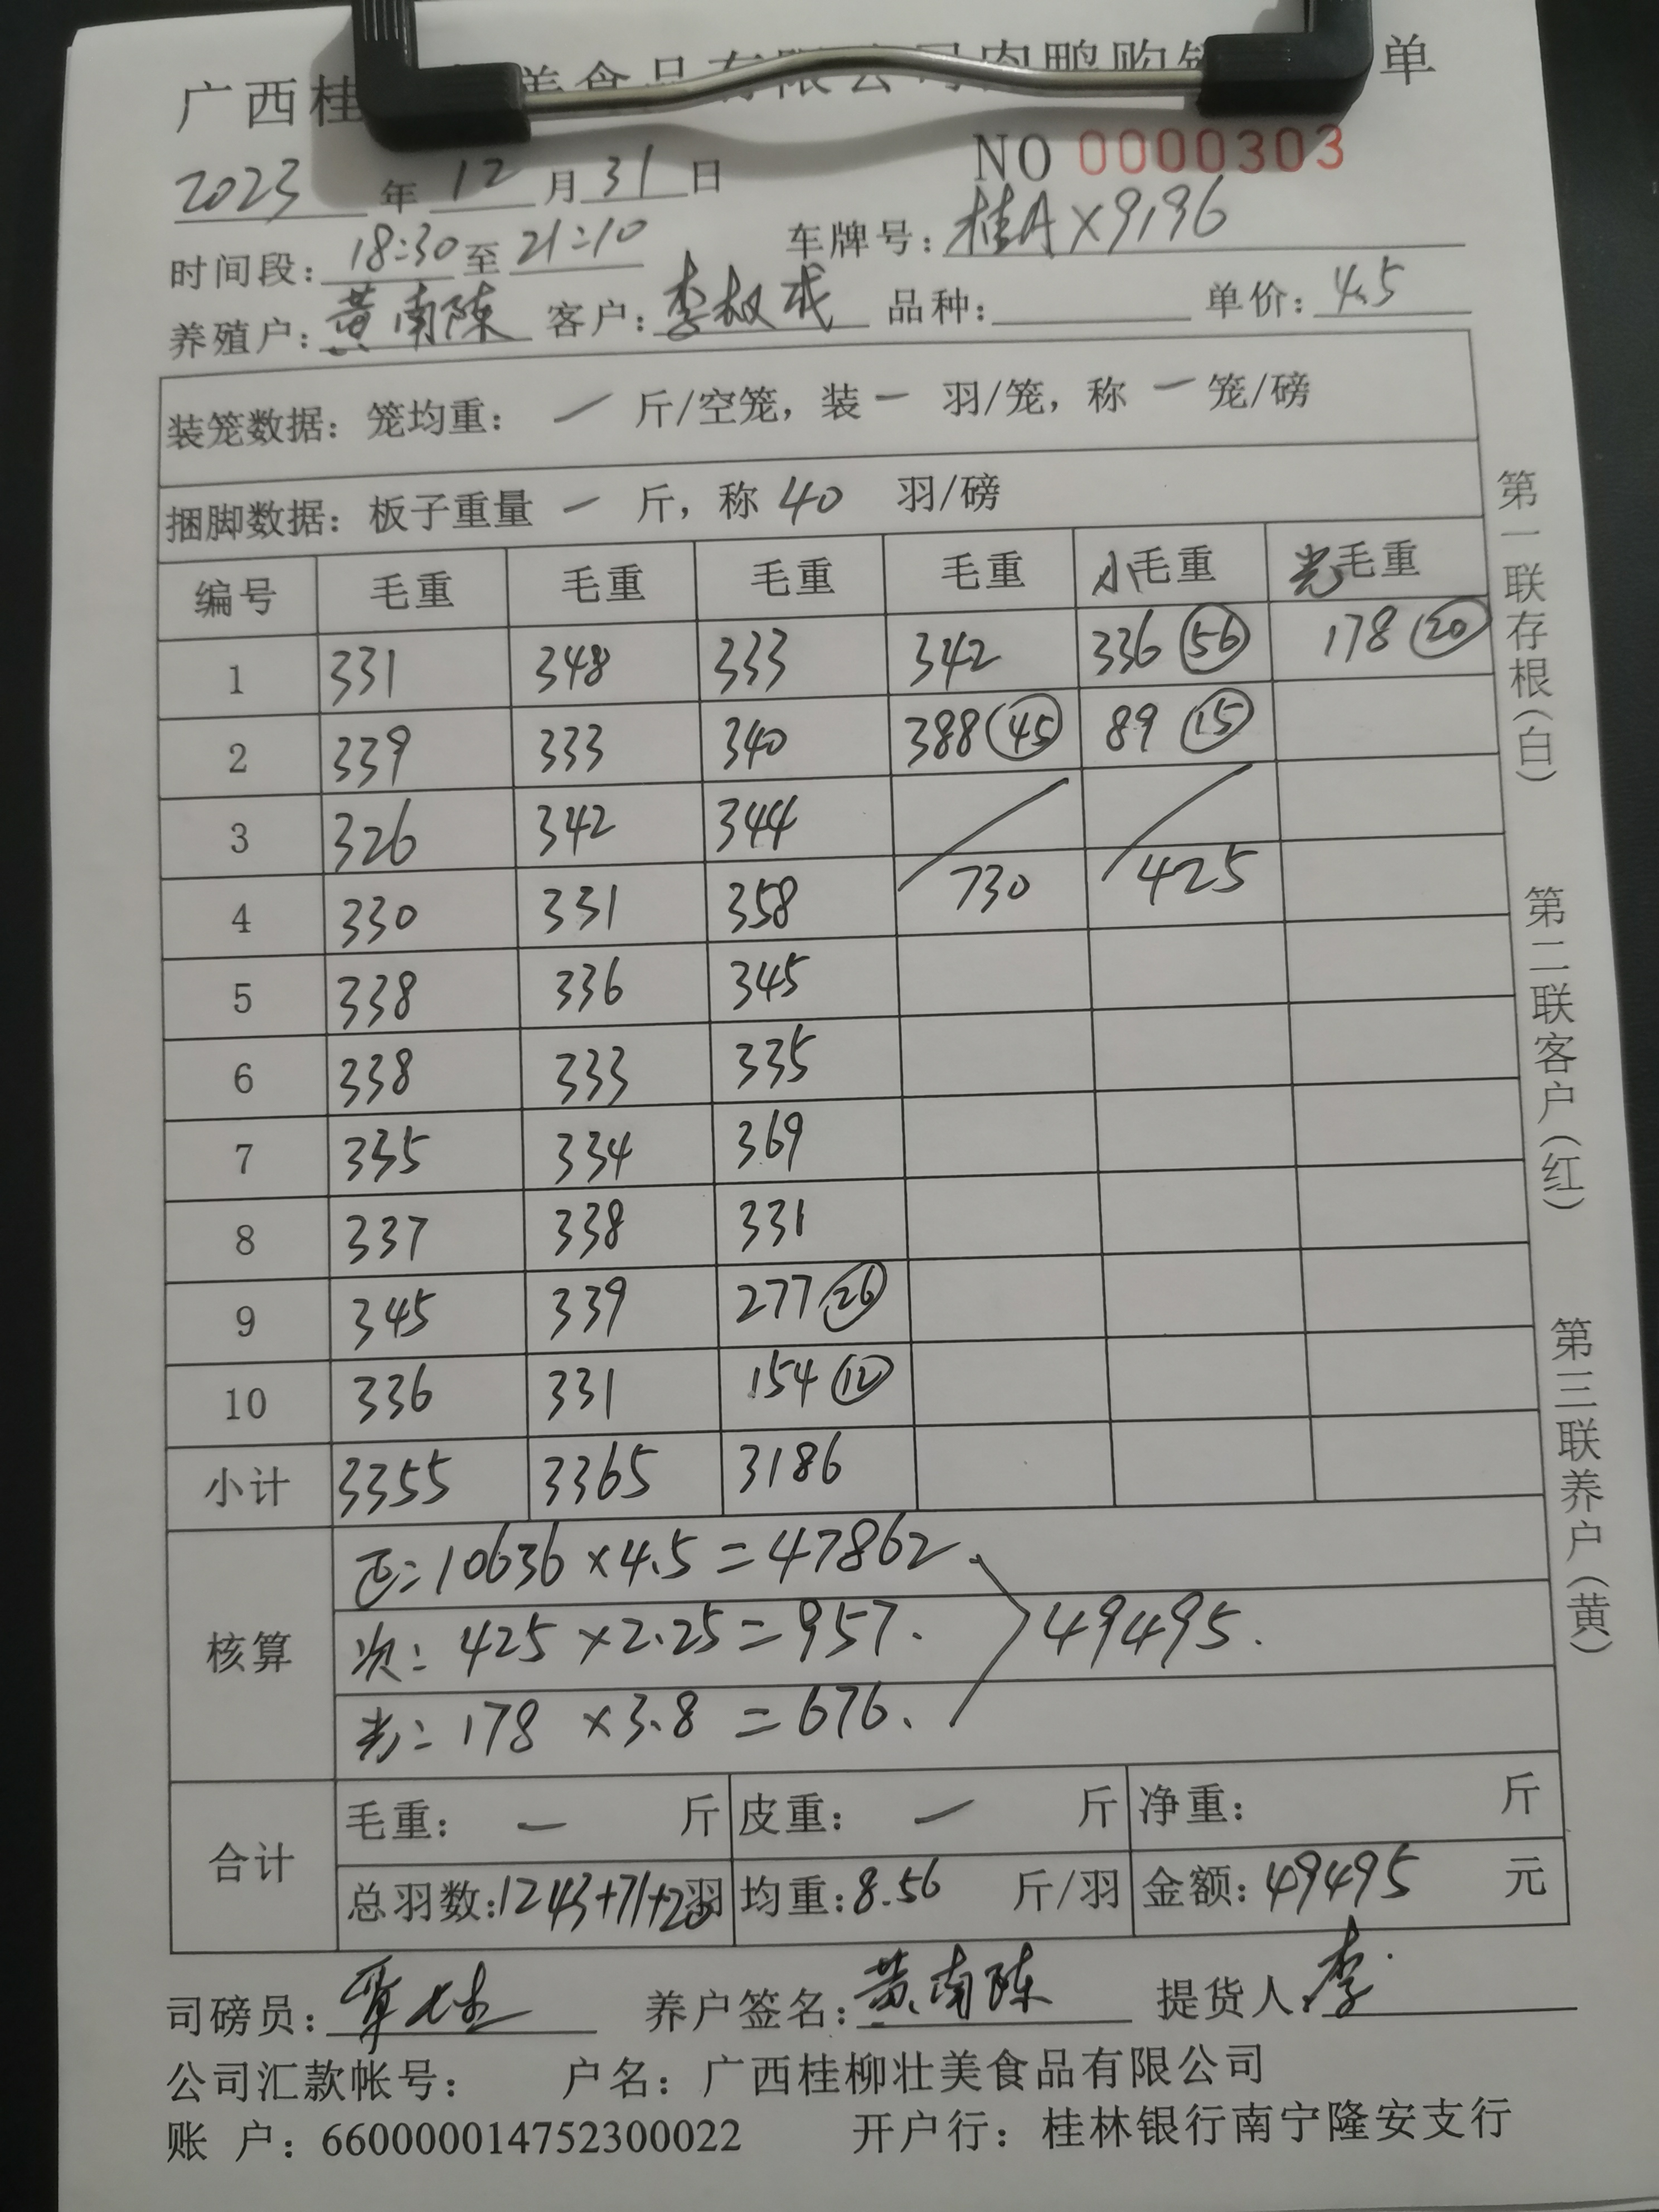 广西桂 美食品有限公司肉鸭购销 单
NO 0000303
2023 年 12 月 31 日
时间段: 18:30 至 21:10 车牌号: 桂A X9196
养殖户: 黄南陈 客户: 李权成 品种: 单价: 4.5
装笼数据: 笼均重: — 斤/空笼, 装 — 羽/笼, 称 — 笼/磅
捆脚数据: 板子重量 — 斤, 称 40 羽/磅
编号 毛重 毛重 毛重 毛重 小毛重 光毛重
1 331 348 333 342 336 (56) 178 (20)
2 339 333 340 388 (45) 89 (15)
3 326 342 344
4 330 331 358 730 425
5 338 336 345
6 338 333 335
7 335 334 369
8 337 338 331
9 345 339 277 (26)
10 336 331 154 (12)
小计 3355 3365 3186
核算
正: 10636 × 4.5 = 47862.
次: 425 × 2.25 = 957. 49495.
光: 178 × 3.8 = 676.
合计
毛重: — 斤 皮重: — 斤 净重: 斤
总羽数: 1243+71+20羽 均重: 8.56 斤/羽 金额: 49495 元
司磅员: 养户签名: 黄南陈 提货人: 李
公司汇款帐号: 户名: 广西桂柳壮美食品有限公司
账 户: 660000014752300022 开户行: 桂林银行南宁隆安支行
第一联存根(白)
第二联客户(红)
第三联养户(黄)